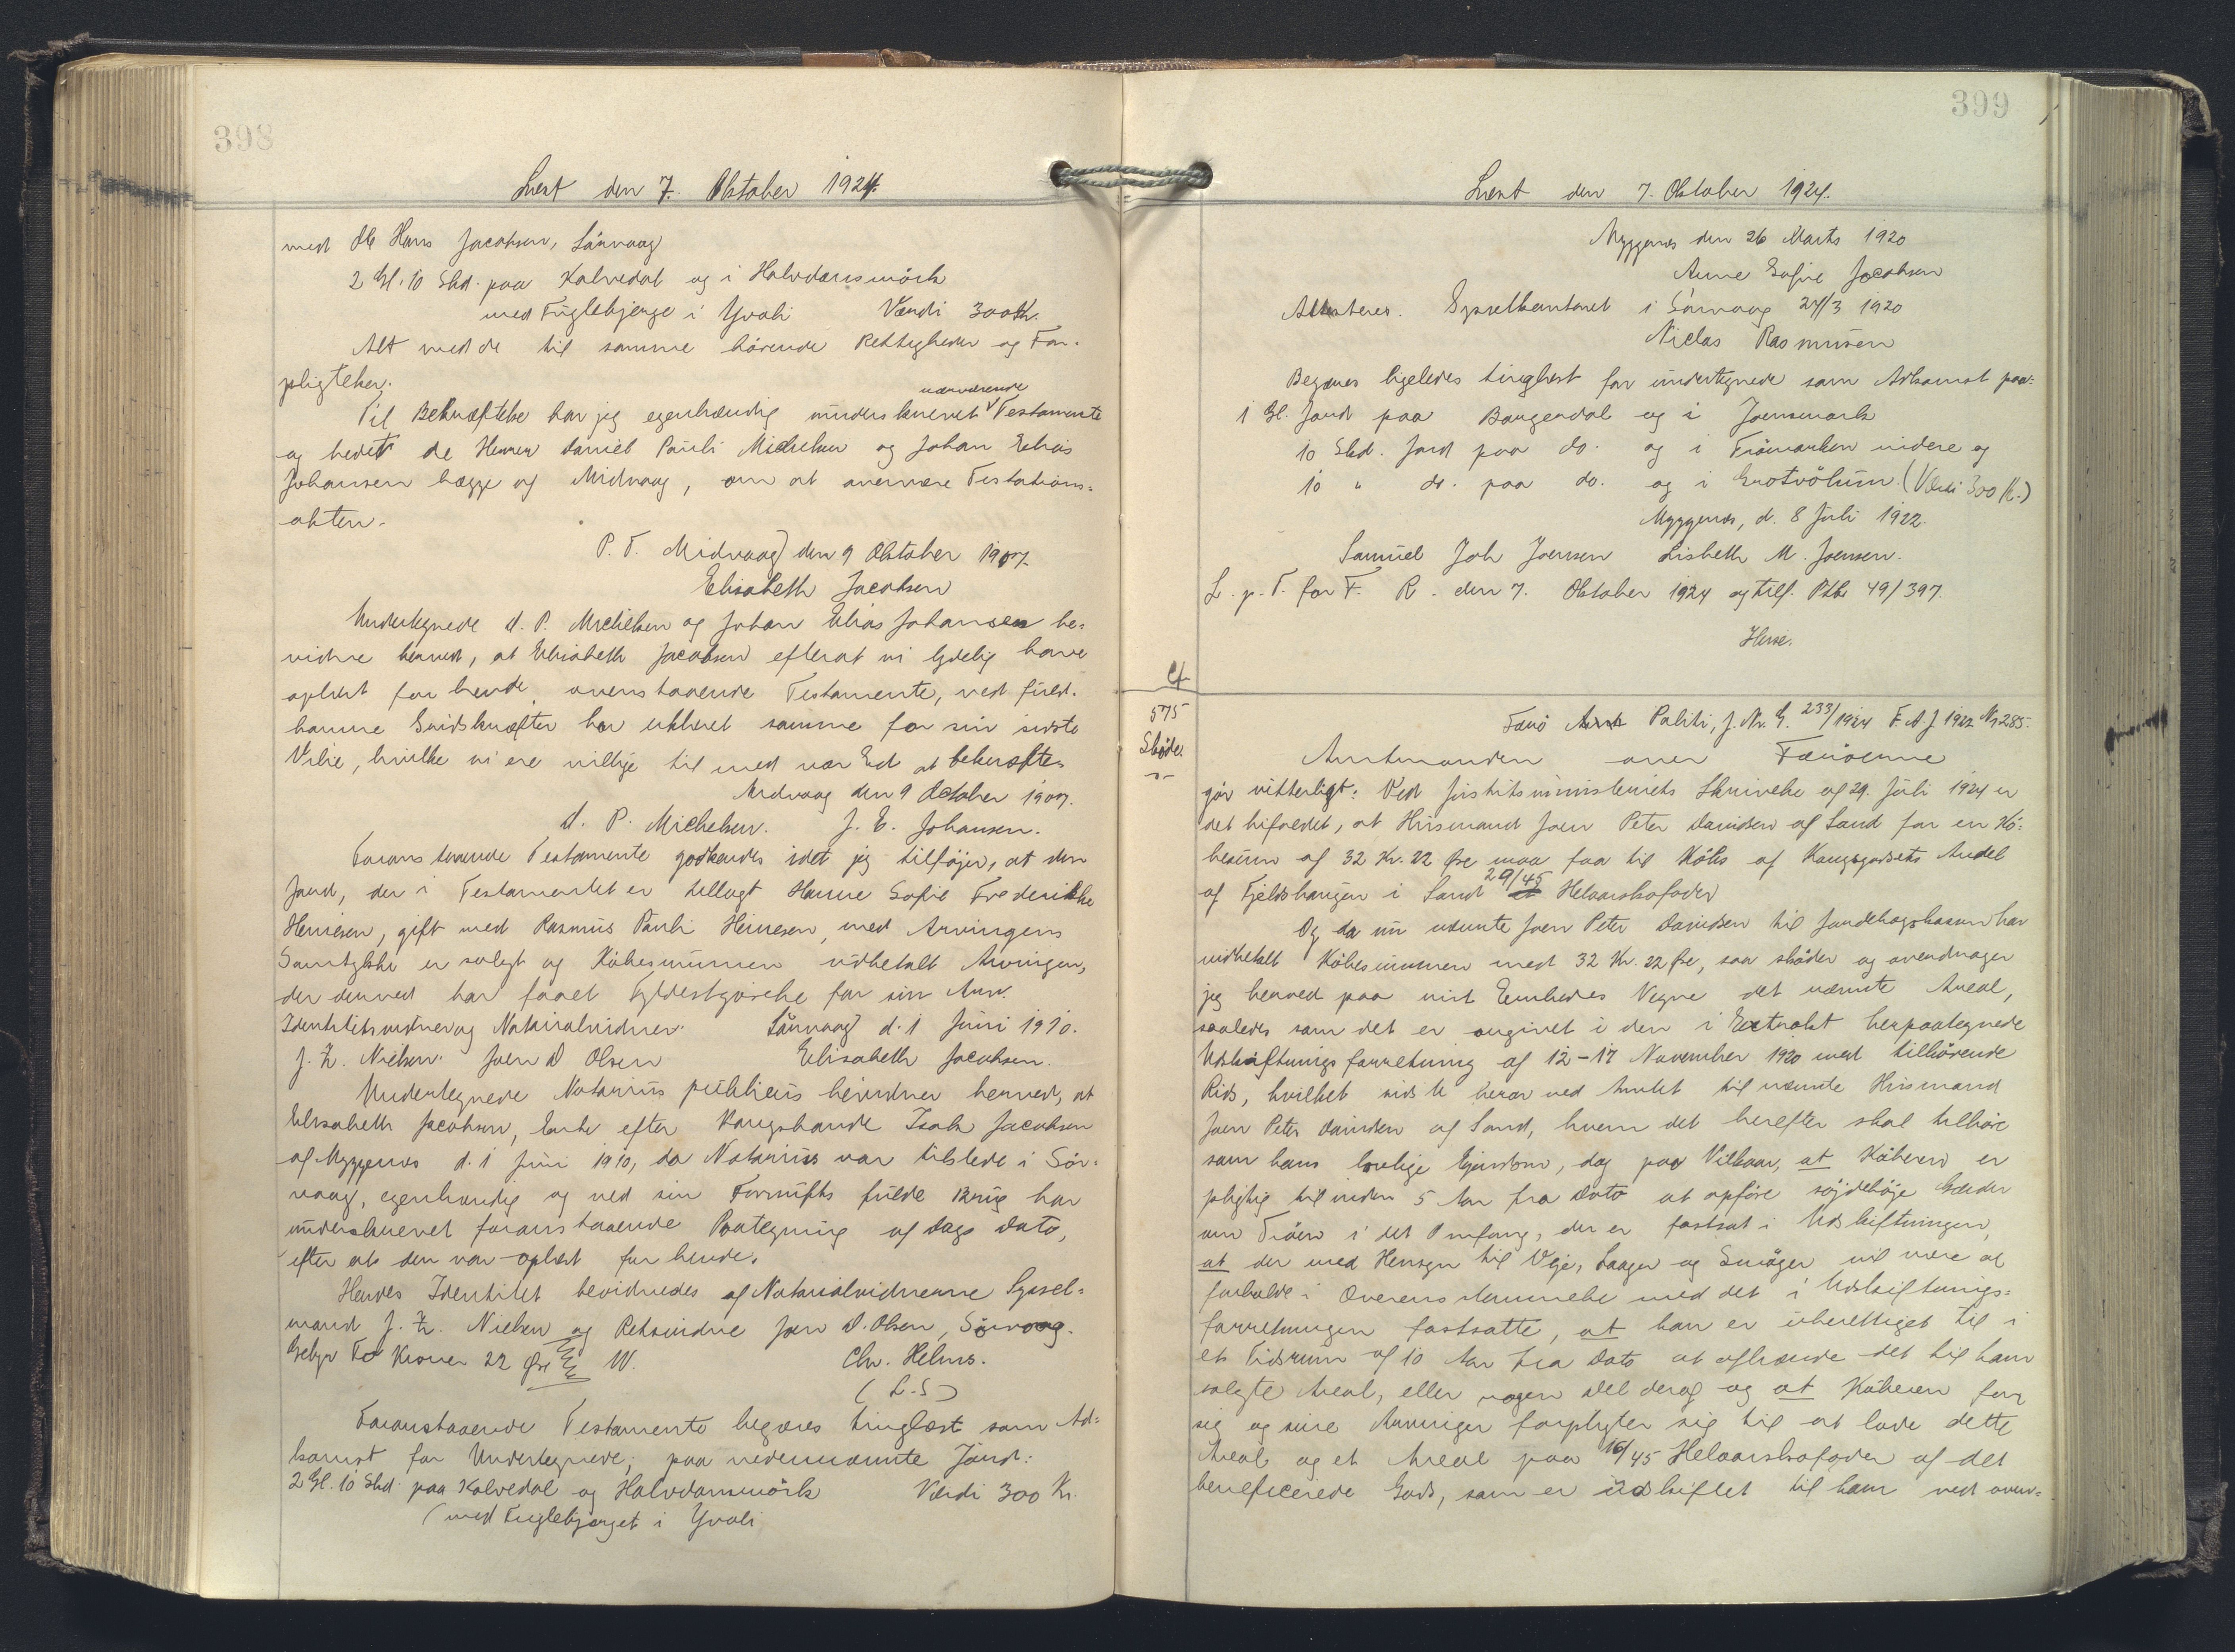 398
Læst den 7. Oktober 1924.
med Ole Hans Jacobsen, Sörvaag
2 Gl. 10 Skd. paa Kalvedal og i Halvdansmörk
med Fuglebjerge i Yvali Værdi 300 Kr.
Alt med de til samme hörende Rettigheder og For-
pligtelser.
nærværende
Til Bekræftelse har jeg egenhændig underskrevet Testamente
og bedet de Herrer Daniel Pauli Michelsen og Johan Elias
Johansen begge af Midvaag, om at overvære Testations-
akten.
P. T. Midvaag den 9 Oktober 1907.
Elisabeth Jacobsen
Undertegnede D. P. Michelsen og Johan Elias Johansen be-
vidne herved, at Elisabeth Jacobsen efterat vi lydelig have
oplæst for hende ovenstaaende Testamente, ved fuld-
komne Sindskræfter har erklæret samme for sin sidste
Vilie, hvilke vi ere villige til med vor Ed at bekræfte.
Midvaag den 9 October 1907.
D. P. Michelsen. J. E. Johansen.
Foranstaaende Testamente godkendes idet jeg tilföjer, at den
Jord, der i Testamentet er tillagt Hanne Sofie Frederikke
Heinesen, gift med Rasmus Pauli Heinesen, med Arvingens
Samtykke er solgt og Köbesummen udbetalt Arvingen,
der derved har faaet Fyldestgörelse for sin Arv.
Identitetsvidner og Notarialvidner. Sörvaag d. 1 Juni 1910.
J. Z. Nielsen. Joen D Olsen Elisabeth Jacobsen.
Undertegnede Notarius publicus bevidner herved, at
Elisabeth Jacobsen, Enke efter Kongsbonde Isak Jacobsen
af Myggenæs d. 1 Juni 1910, da Notarius var tilstede i Sör-
vaag, egenhændig og ved sin Fornufts fulde Brug har
underskrevet foranstaaende Paategning af Dags Dato,
efter at den var oplæst for hende.
Hendes Identitet bevidnedes af Notarialvidnerne Syssel-
mand J. Z. Nielsen og Retsvidne Joen D. Olsen, Sörvaag.
Gebyr To Kroner 22 Øre W. Chr. Helms.
(L. S)
Foranstaaende Testamente begæres tinglæst som Ad-
komst for Undertegnede, paa nedennævnte Jord:
2 Gl. 10 Skd. paa Kalvedal og Halvdansmörk Værdi 300 Kr.
(med Fuglebjerget i Yvali
399
Læst den 7. Oktober 1924.
Myggenæs den 26 Marts 1920
Anne Sofie Jacobsen
Attesteres. Sysselkontoret i Sörvaag 27/3 1920
Niclas Rasmusen
Begæres ligeledes tinglæst for undertegnede som Adkomst paa:
1 Gl. Jord paa Borgendal og i Joensmark
10 Skd. Jord paa do. og i Tröomarken nidere og
10 " do. paa do. og i Grotvölum. (Værdi 300 Kr.)
Myggenæs, d. 8 Juli 1922.
Samuel Joh Joensen Lisbeth M. Joensen.
L. p. T. for F. R. den 7. Oktober 1924 og tilf. Ptb. 49/397.
Heise.
Cf.
575
Sköde.
Færö Amt Politi, J. Nr. G. 233/1924 F. A. J 1922 Nr 285.
Amtmanden over Færöerne
gör vitterligt: Ved Justitsministeriets Skrivelse af 29. Juli 1924 er
det bifaldet, at Husmand Joen Peter Davidsen af Sand for en Kö-
besum af 32 Kr. 22 Øre maa faa til Köbs af Kongsgodsets Andel
af Fjeldshaugen i Sand 29/45 Helaarskofoder
Og da nu nævnte Joen Peter Davidsen til Jordebogskassen har
indbetalt Köbesummen med 32 Kr. 22 Øre, saa sköder og overdrager
jeg herved paa mit Embedes Vegne det nævnte Areal,
saaledes som det er angivet i den i Extrakt herpaategnede
Udskiftningsforretning af 12-17 November 1920 med tilhörende
Rids, hvilket sidste beror ved Amtet til nævnte Husmand
Joen Peter Davidsen af Sand, hvem det herefter skal tilhöre
som hans lovlige Ejendom, dog paa Vilkaar, at Köberen er
pligtig til inden 5 Aar fra Dato at opföre söjdehöje Gærder
om Tröen i det Omfang, der er fastsat i Udskiftningen,
at der med Hensyn til Veje, Laager og Smöger vil være at
forholde i Overensstemmelse med det i Udskiftnings-
forretningen fastsatte, at han er uberettiget til i
et Tidsrum af 10 Aar fra Dato at afhænde det til ham
solgte Areal, eller nogen Del deraf og at Köberen for
sig og sine Arvinger forpligter sig til at lade dette
Areal og et Areal paa 16/45 Helaarskofoder af det
beneficerede Gods, som er udskiftet til ham ved oven-